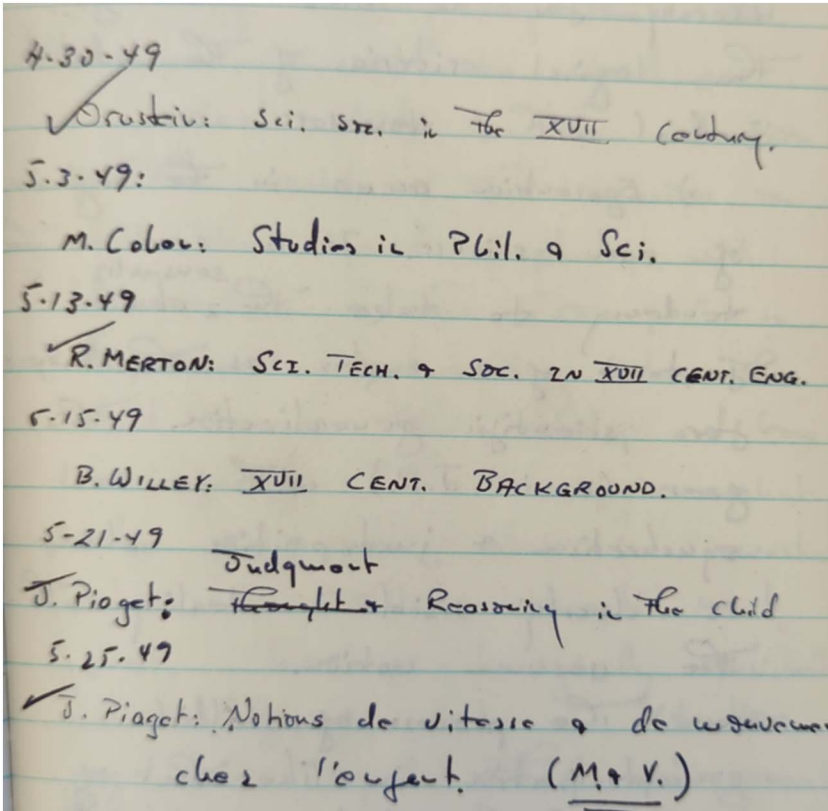 4-30-49
✓ Ornstein: Sci. Soc. in the XVII Century.
5.3.49:
M. Cohen: Studies in Phil. & Sci.
5-13-49
✓ R. MERTON: SCI. TECH. & SOC. IN XVII CENT. ENG.
5-15-49
B. WILLEY: XVII CENT. BACKGROUND.
5-21-49
Judgment
✓ J. Piaget: Thought & Reasoning in the child
5.25.49
✓ J. Piaget: Notions de vitesse & de mouvemen
chez l'enfant. (M. & V.)